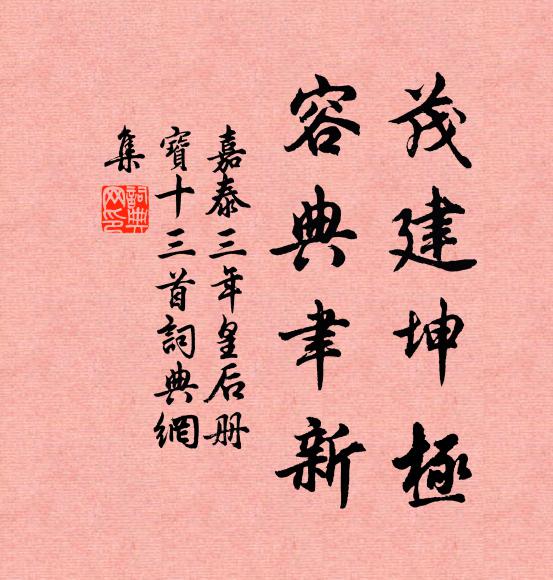 茂建坤極
容典聿新
嘉泰三年皇后册
寶十三首詞典網
集
詞典
网印